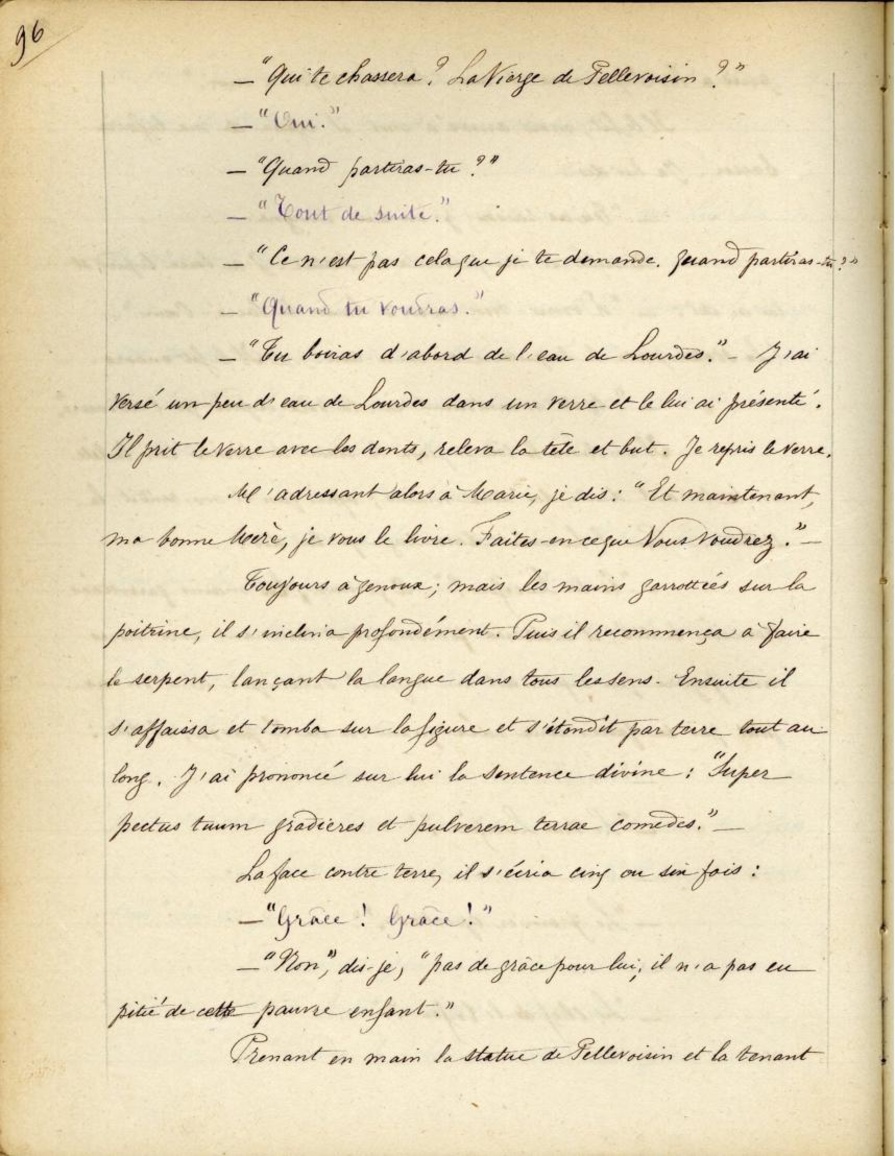 96
— "Qui te chassera ? La Vierge de Pellevoisin ?"
— "Oui."
— "Quand partiras-tu ?"
— "Tout de suite."
— "Ce n'est pas cela que je te demande. Quand partiras-tu ?"
— "Quand tu voudras."
— "Tu boiras d'abord de l'eau de Lourdes." — J'ai
versé un peu d'eau de Lourdes dans un verre et le lui ai présenté.
Il prit le verre avec les dents, releva la tête et but. Je repris le verre.
M'adressant alors à Marie, je dis : "Et maintenant,
ma bonne Mère, je vous le livre. Faites-en ce que Vous voudrez." —
Toujours à genoux ; mais les mains garrottées sur la
poitrine, il s'inclina profondément. Puis il recommença à faire
le serpent, lançant la langue dans tous les sens. Ensuite il
s'affaissa et tomba sur la figure et s'étendit par terre tout au
long. J'ai prononcé sur lui la sentence divine : "Super
pectus tuum gradieres et pulverem terrae comedes." —
La face contre terre, il s'écria cinq ou six fois :
— "Grâce ! Grâce !"
— "Non", dis-je, "pas de grâce pour lui, il n'a pas eu
pitié de cette pauvre enfant."
Prenant en main la statue de Pellevoisin et la tenant